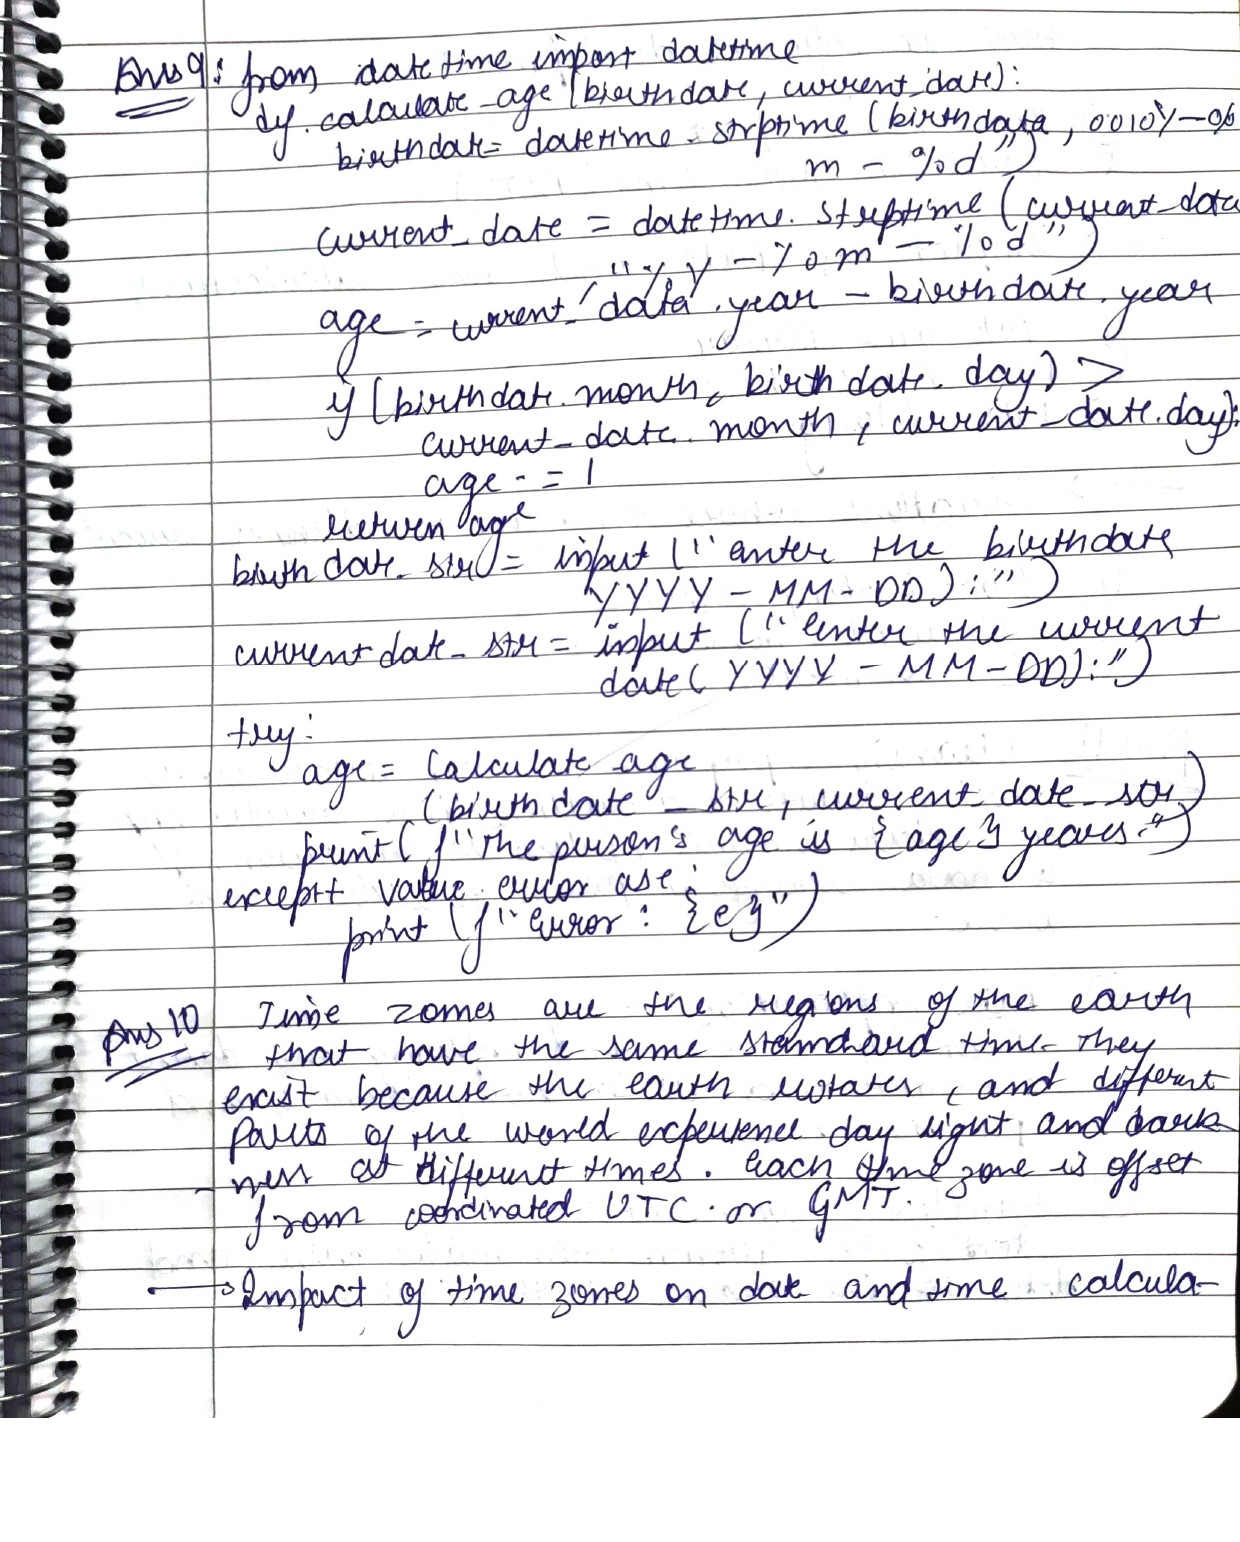 Ans 9: from datetime import datetime
def calculate_age (birthdate, current_date):
birthdate = datetime. strptime (birthdata, 0010Y-%
m - %d")
current_date = datetime. strptime (current_data
"%Y - %m - %d")
age = current_data.year - birthdate.year
if (birthdate.month, birthdate.day) >
current_date.month, current_date.day):
age -= 1
return age
birthdate_str = input ("enter the birthdate
YYYY - MM - DD):")
currentdate_str = input ("Enter the current
date( YYYY - MM - DD):")
try:
age = Calculate age
(birthdate _ str, current_date_str)
print(f"The person's age is {age} years.")
except value error ase:
print (f"Error: {e}")
Ans 10 Time zones are the regions of the earth
that have the same standard time. They
exist because the earth rotates, and different
parts of the world experience day light and dark
-ness at different times. Each time zone is offset
from coordinated UTC. or GMT.
→ Impact of time zones on date and time calcula-